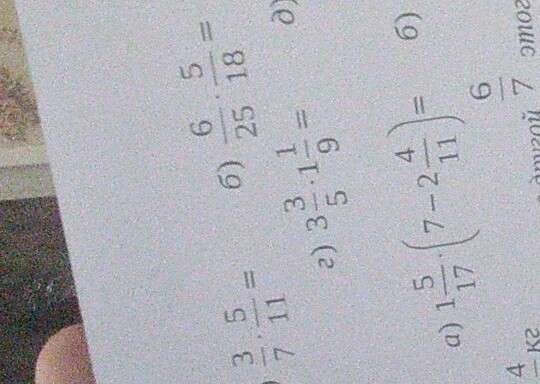 ) \frac{3}{7} \cdot \frac{5}{11} = б) \frac{6}{25} \cdot \frac{5}{18} =
г) 3\frac{3}{5} \cdot 1\frac{1}{9} = д)
а) 1\frac{5}{17} \cdot \left(7 - 2\frac{4}{11}\right) = б)
\frac{4}{} кг другой \frac{6}{7} этог